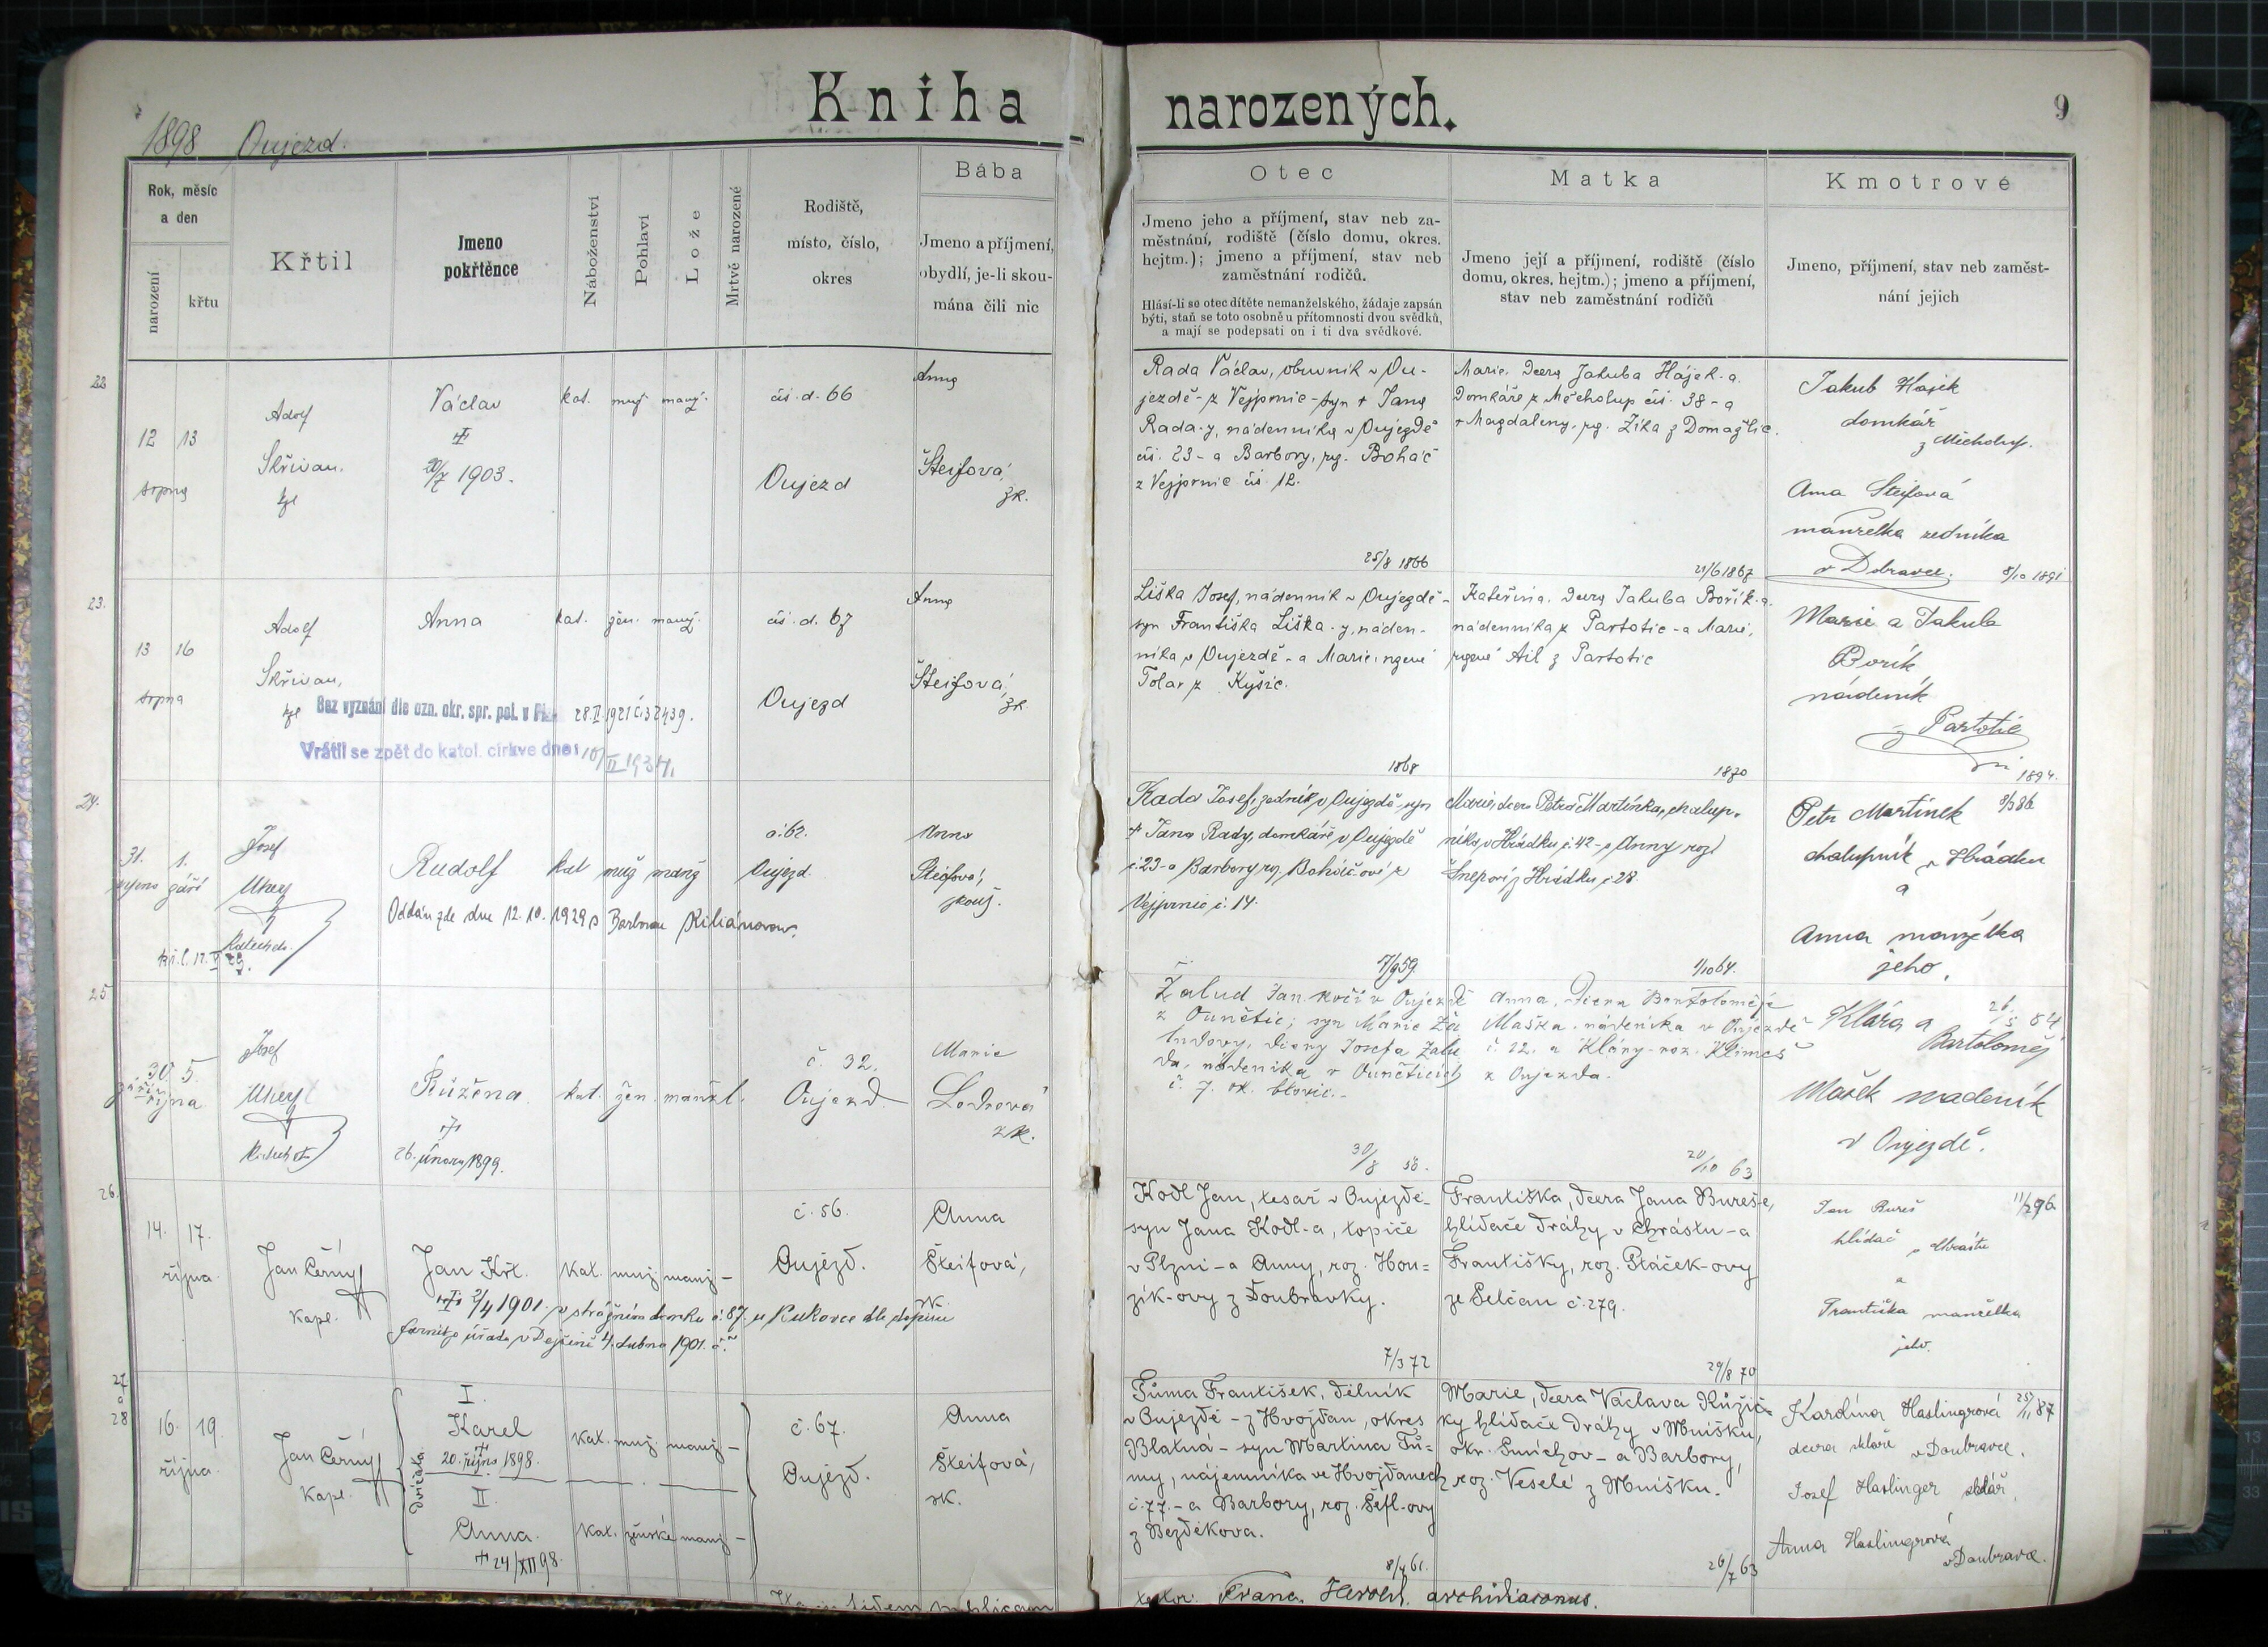 Kniha narozených.
9
1898 Oujezd.
Rok, měsíc
a den
narození
křtu
Křtil
Jmeno
pokřtěnce
Náboženství
Pohlaví
Lože
Mrtvě narozené
Rodiště,
místo, číslo,
okres
Bába
Jmeno a příjmení,
obydlí, je-li skou-
mána čili nic
Otec
Jmeno jeho a příjmení, stav neb za-
městnání, rodiště (číslo domu, okres.
hejtm.); jmeno a příjmení, stav neb
zaměstnání rodičů.
Hlásí-li se otec dítěte nemanželského, žádaje zapsán
býti, staň se toto osobně u přítomnosti dvou svědků,
a mají se podepsati on i ti dva svědkové.
Matka
Jmeno její a příjmení, rodiště (číslo
domu, okres. hejtm.); jmeno a příjmení,
stav neb zaměstnání rodičů
Kmotrové
Jmeno, příjmení, stav neb zaměst-
nání jejich
22
12 13
srpna
Adolf
Skřivan.
Václav
20/7 1903.
kat. muž. manž.
čís. d. 66
Oujezd
Anna
Šteifová,
zk.
Rada Václav, obuvník v Ou-
jezdě - z Vejprnic - syn + Jana
Rada-y, nádenníka v Oujezdě
čís. 23 - a Barbory, roz. Boháč
z Vejprnic čís. 12.
25/8 1866
Marie, dcera Jakuba Hájek-a
domkáře z Měcholup čís. 38 - a
+ Magdaleny, roz. Zíka z Domažlic.
21/6 1867
Jakub Hájek
domkář
z Měcholup.
Anna Steifová
manželka zedníka
v Dobravce.
8/10 1891
23.
13 16
srpna
Adolf
Skřivan,
Anna
kat. žen. manž.
čís. d. 67
Oujezd
Anna
Šteifová,
zk
Bez vyznání dle ozn. okr. spr. pol. v 28.II.1921 č. 32439.
Vrátil se zpět do katol. církve dne: 10/II 1934.
Liška Josef, nádenník v Oujezdě -
syn Františka Liška-y, náden-
níka v Oujezdě - a Marie, rozené
Tolar z Kyšic.
1868
Kateřina, dcera Jakuba Bořík-a
nádenníka z Partotic - a Marie,
rozené Ail z Partotic
1870
Marie a Jakub
Bořík
nádeník
z Partotic
1894.
24.
31. 1.
srpna září
Josef
Uhey
Katecheta.
Rudolf
kat muž manž
Oddán zde dne 12.10.1929 s Barborou Kiliánovou.
č. 62.
Oujezd
Anna
Šteifová,
zkouš.
Rada Josef, zedník v Oujezdě, syn
+ Jana Rady, domkáře v Oujezdě
č. 23 - a Barbory roz. Boháčové z
Vejprnic č. 14.
7/9 59.
Marie, dcera Petra Martínka, chalup-
níka v Hrádku č. 42 - a Anny roz.
Šnepové z Hrádku č 28
1/10 64.
Petr Martínek 8/2 86
chalupník v Hrádku
a
Anna manželka
jeho.
25
30. 5.
září října
Josef
Uhey
Růžena.
26. února 1899.
kat. žen. manžel.
č. 32.
Oujezd.
Marie
Lodrová
zk.
Žalud Jan kočí v Oujezdě
z Ounětic; syn Marie Ža
ludovy, dcery Josefa Žalu
da, nádeníka v Ouněticích
č. 7. ok. Blovic. -
Anna, dcera Bartoloměje
Maška, nádeníka v Oujezdě
č. 32. a Kláry - roz. Klimeš
z Oujezda.
20/10 63
Klára a
Bartoloměj
Mašek nadeník
v Oujezdě.
26.
14. 17.
října.
Jan Černý
kapl.
Jan Křt.
kat. muž. manž -
č. 56.
Oujezd.
Anna
Šteifová,
zk.
2/4 1901. v strážním domku č. 87. u Rukovce dle dopisu
farního úřadu v Dejšině 4. dubna 1901. č.
Kodl Jan, tesař v Oujezdě -
syn Jana Kodl-a, topiče
v Plzni - a Anny, roz. Hou=
zík-ovy z Doubravky.
7/3 72
Františka, dcera Jana Bureš-e,
hlídače dráhy v Chrástu - a
Františky, roz. Ptáček-ovy
ze Selčan č. 279.
29/8 70
Jan Bureš 11/2 96
hlídač
v Chrástu
a
Františka manželka
jeho.
27
a
28
16. 19.
října.
Jan Černý
kapl.
dvojčata
I.
Karel
20. října 1898.
kat. muž. manž -
II.
Anna.
+ 24/XII 98.
kat. ženské manž -
č. 67.
Oujezd.
Anna
Šteifová,
zk.
Tůma František, dělník
v Oujezdě - z Hvožďan, okres
Blatná - syn Martina Tů=
my, nájemníka ve Hvožďanech
č. 77. - a Barbory, roz. Šefl-ovy
z Bezděkova.
8/4 61.
Marie, dcera Václava Růžič-
ky hlídače dráhy v Mníšku,
okr. Smíchov - a Barbory,
roz. Veselé z Mníšku.
26/7 63
Karolína Haslingrová 25/11 87
dcera skláře v Doubravce.
Josef Haslinger sklář,
Anna Haslingrová
v Doubravce.
fidem publicam
testor: Franc. Herold, archidiaconus.